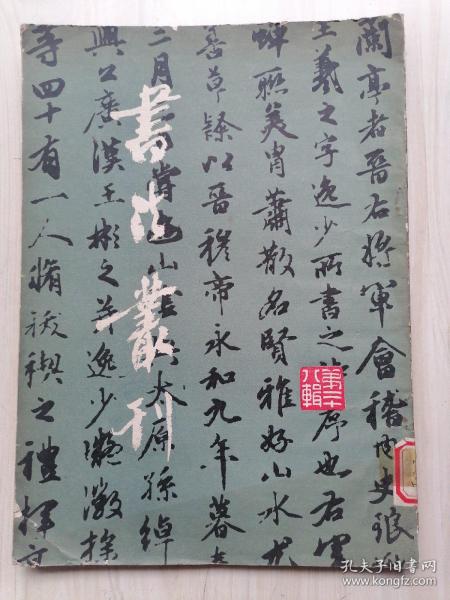 蘭亭者晉右將軍會稽內史琅
王羲之字逸少所書之詩序也右軍
蟬聯美胄蕭散名賢雅好山水尤
善草隸以晉穆帝永和九年暮春
三月 山 太原孫綽
興公廣漢王彬之并逸少凝徽操
等四十有一人脩祓禊之禮揮
書法叢刊
第二十
八輯
孔夫子旧书网
www.kongfz.com